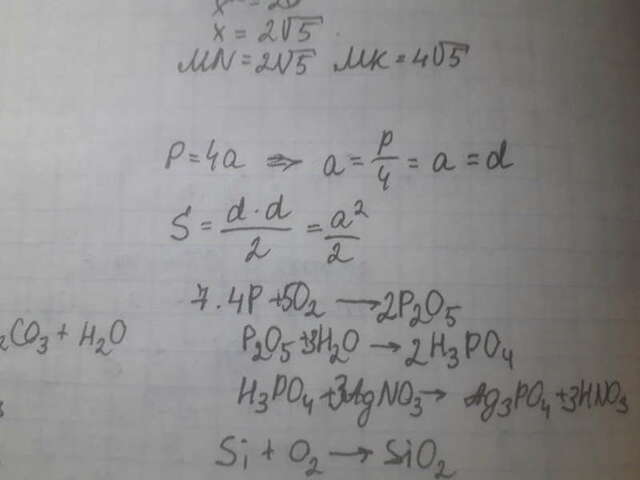 x = 2√5
MN = 2√5 MK = 4√5
P = 4a ⇒ a = P/4 = a = d
S = d·d/2 = a²/2
7. 4P + 5O₂ → 2P₂O₅
₂CO₃ + H₂O
P₂O₅ + 3H₂O → 2H₃PO₄
H₃PO₄ + 3AgNO₃ → Ag₃PO₄ + 3HNO₃
Si + O₂ → SiO₂